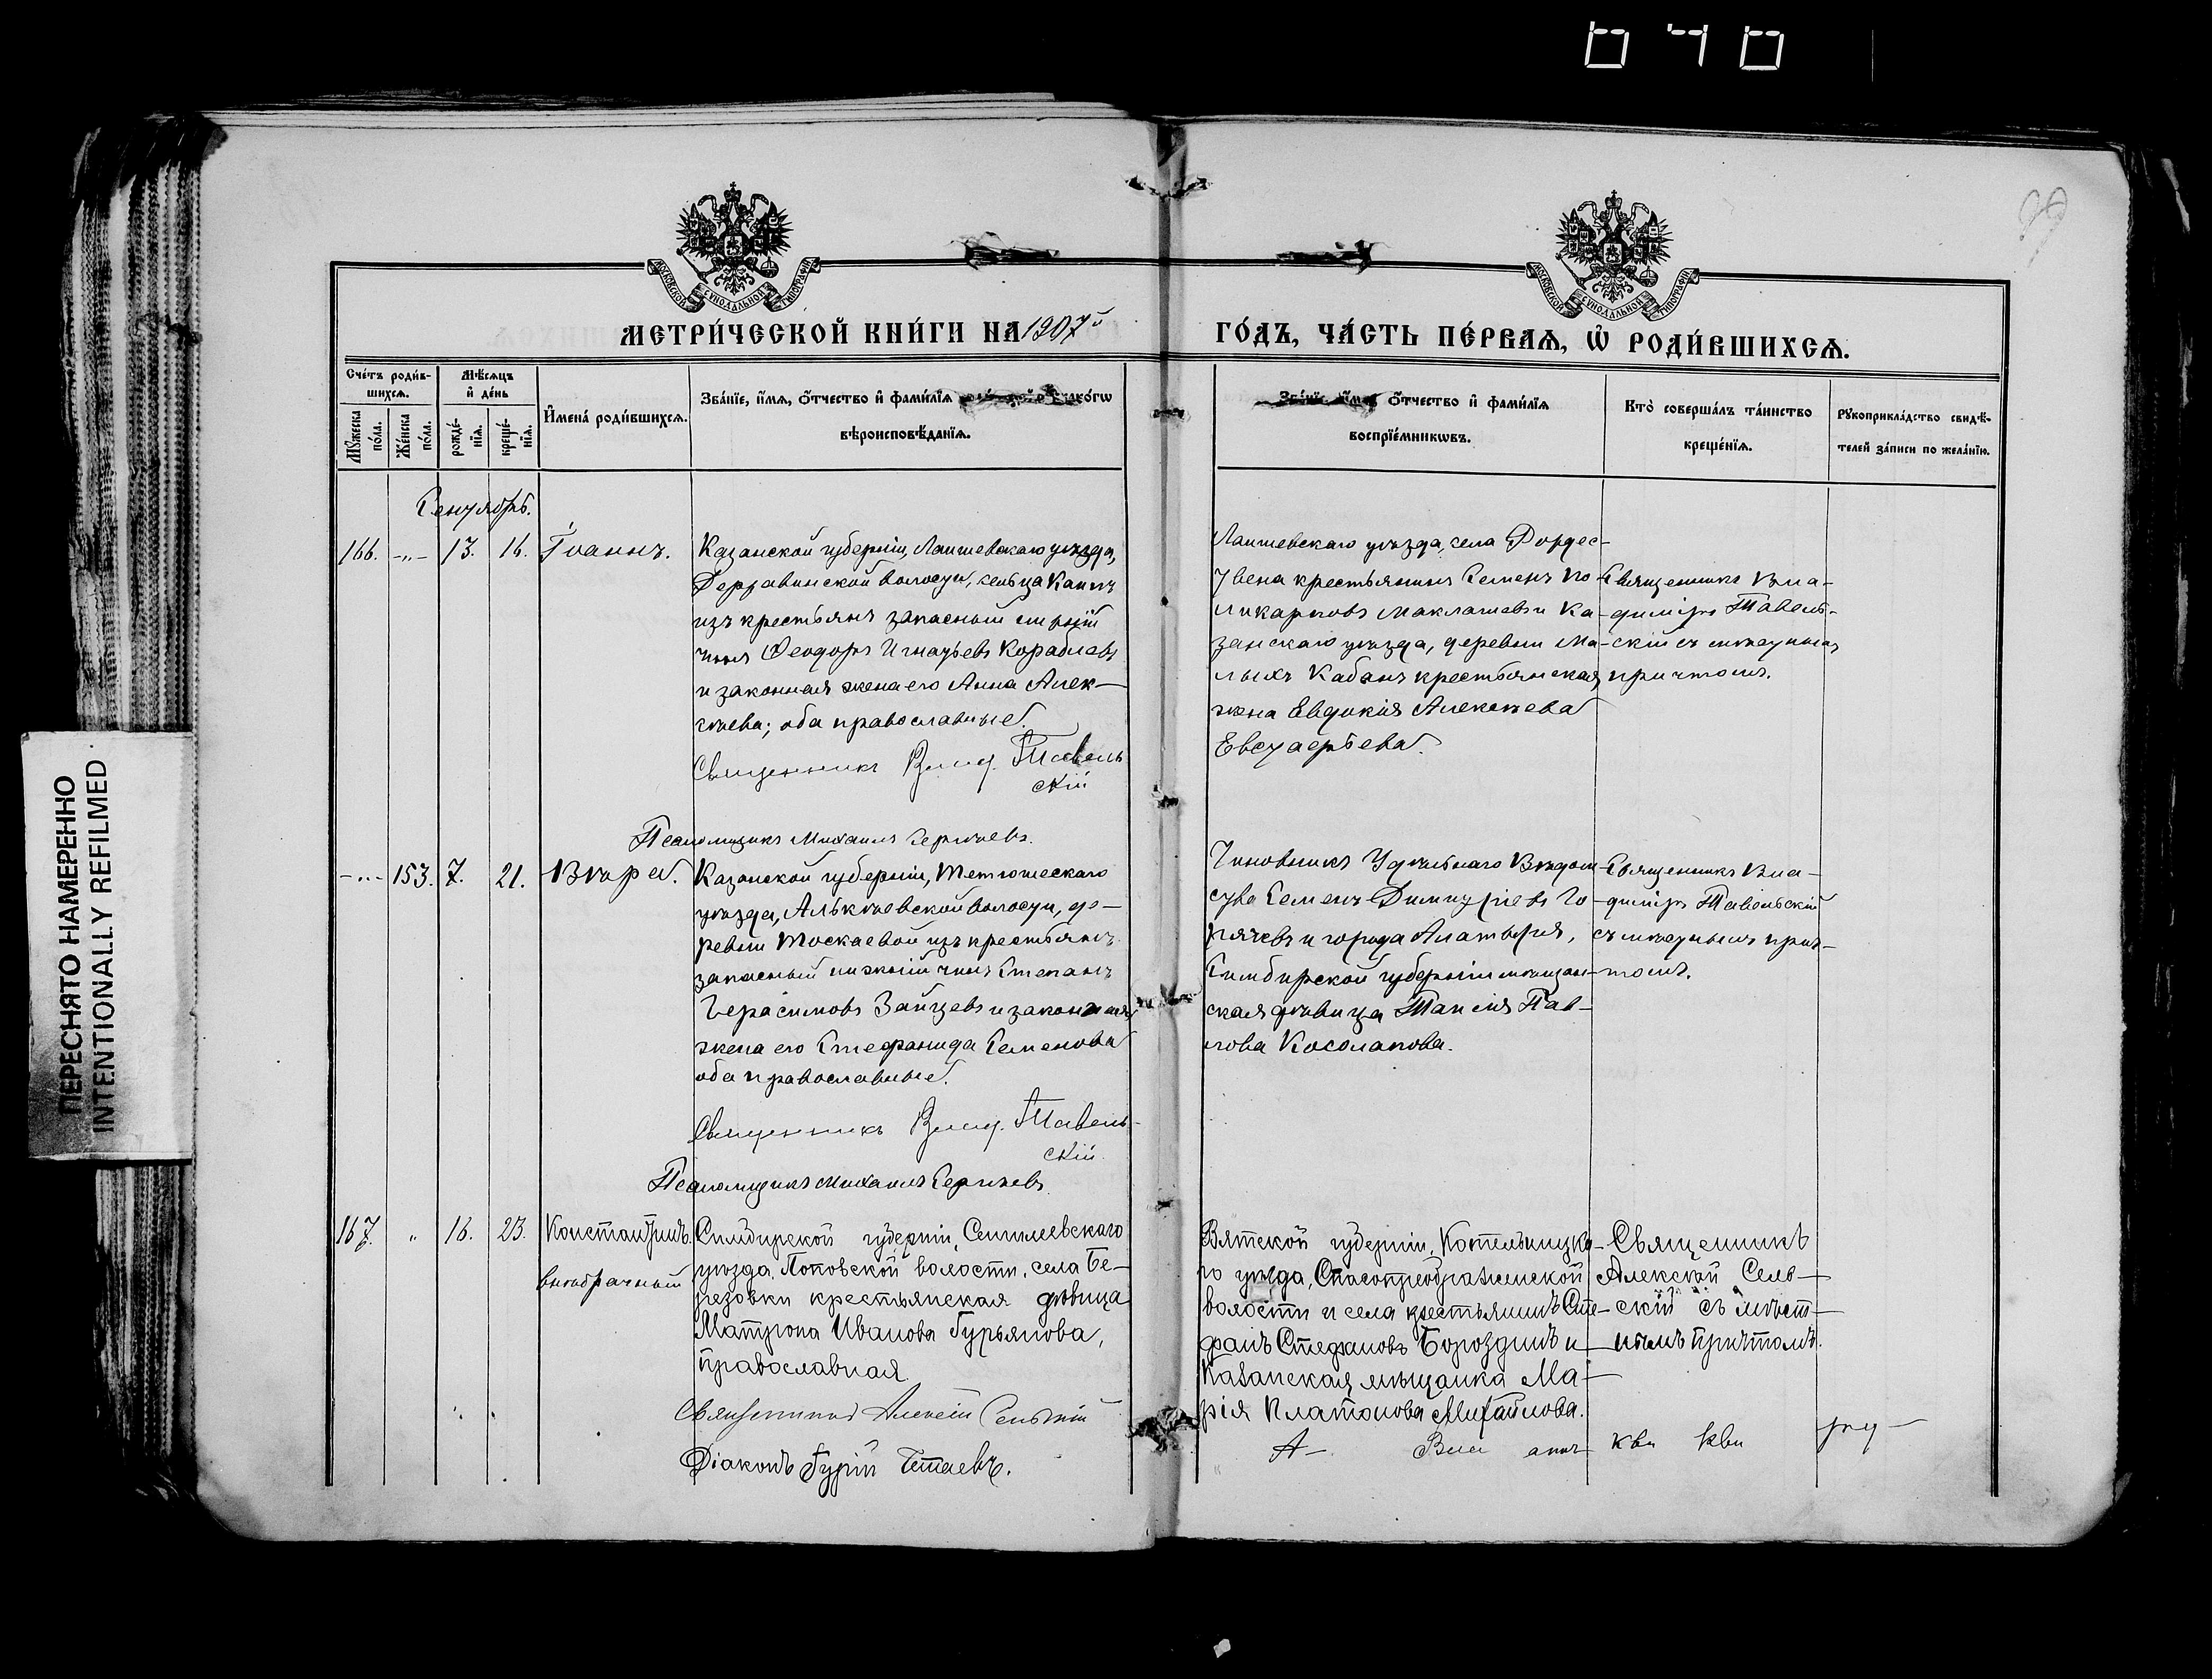 ПЕРЕСНЯТО НАМЕРЕННО
INTENTIONALLY REFILMED
МЕТРИ́ЧЕСКОЙ КНИ́ГИ НА 1907й
ГО́ДЪ, ЧА́СТЬ ПЕ́РВАѦ, Ѡ҆ РОДИ́ВШИХСѦ.
МОСКОВСКОЙ СѴНОДАЛЬНОЙ ТИПОГРАФІИ
МОСКОВСКОЙ СѴНОДАЛЬНОЙ ТИПОГРАФІИ
Сче́тъ роди́в-
шихсѧ.
Мꙋжеска по́ла.
Же́нска по́ла.
Мѣ́сѧцъ
и҆ де́нь
рожде́-
нїѧ.
креще́-
нїѧ.
И҆мена̀ роди́вшихсѧ.
Зва́нїе, и҆́мѧ, ѻ҆́тчество и҆ фами́лїѧ
вѣроисповѣ́данїѧ.
ѻ҆́тчество и҆ фами́лїѧ
воспрїе́мникѡвъ.
Кто̀ соверша́лъ та́инство
креще́нїѧ.
Рꙋкоприкла́дство свидѣ́-
телей за́писи по жела́нїю.
Сентябрь.
166. -„- 13. 16. Іоаннъ.
Казанской губерніи, Лаишевскаго уѣзда,
Державинской волости, сельца Каипъ
изъ крестьянъ запасный нижній
чинъ Феодоръ Игнатьевъ Кораблевъ
и законная жена его Анна Алек-
сѣева; оба православные.
Священникъ Влад. Тавель
скій
Псаломщикъ Михаилъ Сергѣевъ.
Лаишевскаго уѣзда, села
крестьянинъ Семенъ По-
ликарповъ Маклашевъ и Ка-
занскаго уѣзда, деревни Ма-
лыхъ Кабанъ крестьянская
жена Евдокія Алексѣева
Евстафьева.
Священникъ Вла-
димиръ Тавель-
скій съ мѣстнымъ
причтомъ.
-„- 153. 7. 21. Вѣра.
Казанской губерніи, Тетюшскаго
уѣзда, Алькѣевской волости, де-
ревни Москаевой изъ крестьянъ
запасный нижній чинъ Степанъ
Герасимовъ Зайцевъ и законная
жена его Стефанида Семенова
оба православные.
Священникъ Влад. Тавель-
скій.
Псаломщикъ Михаилъ Сергѣевъ.
Чиновникъ Удѣльнаго Вѣдом-
ства Семенъ Димитріевъ Го-
рячевъ и города Алатыря,
Симбирской губерніи мѣщан-
ская дѣвица Таисія Пав-
лова Косолапова.
Священникъ Вла-
димиръ Тавельскій
съ мѣстнымъ прич-
томъ.
167. „ 16. 23. Константинъ.
внѣбрачный
Симбирской губерніи, Сенгилеевскаго
уѣзда, Поповской волости, села Бе-
резовки крестьянская дѣвица
Матрона Иванова Гурьянова,
православная.
Священникъ Алексій Сельскій
Діаконъ Гурій
Вятской губерніи, Котельницка-
го уѣзда, Спасопреображенской
волости и села крестьянинъ Сте-
фанъ Стефановъ Бороздинъ и
Казанская мѣщанка Ма-
рія Платонова Михайлова.
Священникъ
Алексѣй Сель-
скій съ мѣст-
нымъ причтомъ.